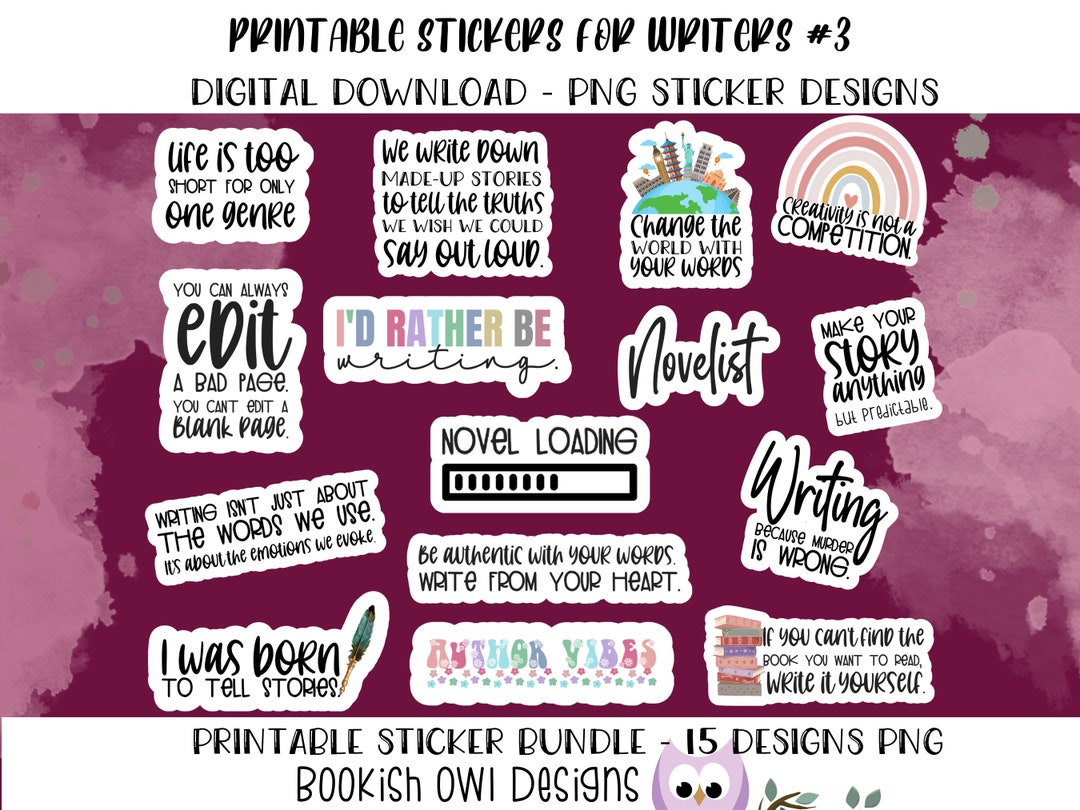 PRINTABLE STICKERS FOR WRITERS #3
DIGITAL DOWNLOAD - PNG STICKER DESIGNS
Life is too
short for only
one genre
We write down
made-up stories
to tell the truths
we wish we could
say out loud.
Change the
world with
your words
Creativity is not a
competition.
You can always
edit
a bad page.
You can't edit a
blank page.
I'D RATHER BE
writing.
Novelist
Make your
story
anything
but predictable.
NOVEL LOADING
Writing isn't just about
the words we use.
It's about the emotions we evoke.
Be authentic with your words.
Write from your heart.
Writing
because murder
is wrong.
I was born
to tell stories.
AUTHOR VIBES
If you can't find the
book you want to read,
write it yourself.
PRINTABLE STICKER BUNDLE - 15 DESIGNS PNG
Bookish Owl Designs